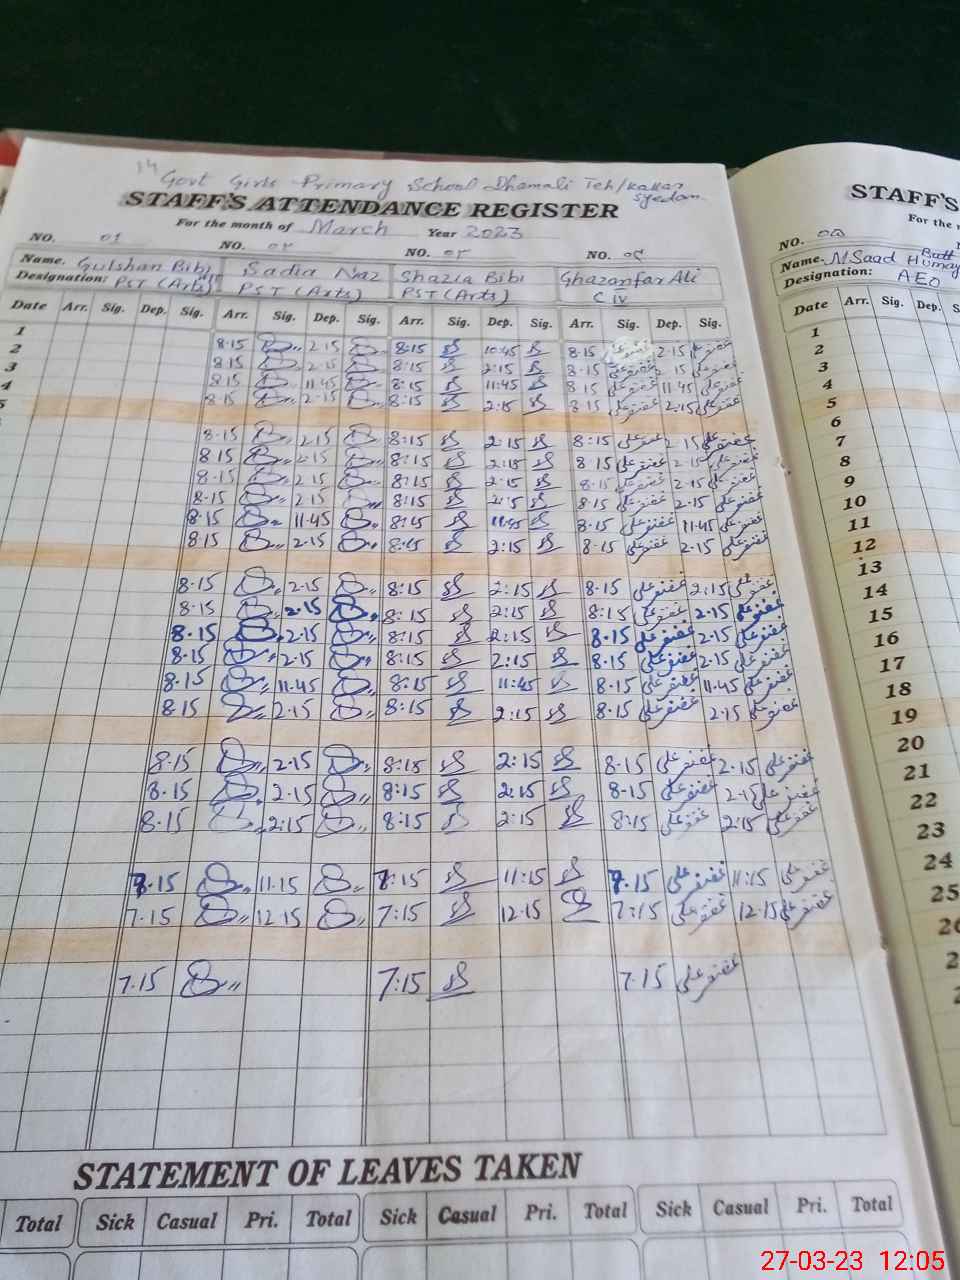 Govt Girls Primary School Dhamali Teh/Kallar Syedan
STAFF'S ATTENDANCE REGISTER
For the month of March Year 2023
NO. 01 NO. ۰۲ NO. ۰۳ NO. ۰۴
Name. Gulshan Bibi Sadia Naz Shazia Bibi Ghazanfar Ali
Designation: PST (Arts) PST (Arts) PST (Arts) C IV
Date Arr. Sig. Dep. Sig. Arr. Sig. Dep. Sig. Arr. Sig. Dep. Sig. Arr. Sig. Dep. Sig.
1 8.15 2.15 8:15 10:45 8.15 2.15 غضنفر علی
2 8.15 2.15 8:15 2:15 8.15 غضنفر علی 2.15 غضنفر علی
3 8.15 11.45 8:15 11:45 8.15 غضنفر علی 11.45 غضنفر علی
4 8.15 2.15 8:15 2:15 8.15 غضنفر علی 2.15 غضنفر علی
5
8.15 2.15 8:15 2:15 8:15 غضنفر علی 2.15 غضنفر علی
8.15 2.15 8:15 2:15 8.15 غضنفر علی 2.15 غضنفر علی
8.15 2.15 8:15 2.15 8.15 غضنفر علی 2.15 غضنفر علی
8.15 2.15 8:15 2:15 8.15 غضنفر علی 2.15 غضنفر علی
8.15 11.45 8:45 11:45 8.15 غضنفر علی 11.45 غضنفر علی
8.15 2.15 8:45 2:15 8.15 غضنفر علی 2.15 غضنفر علی
8.15 2.15 8:15 2:15 8.15 غضنفر علی 2:15 غضنفر علی
8.15 2.15 8:15 2:15 8:15 غضنفر علی 2.15 غضنفر علی
8.15 2.15 8:15 2:15 8.15 غضنفر علی 2.15 غضنفر علی
8.15 2.15 8:15 2:15 8.15 غضنفر علی 2.15 غضنفر علی
8.15 11.45 8:15 11:45 8.15 غضنفر علی 11.45 غضنفر علی
8.15 2.15 8:15 2:15 8.15 غضنفر علی 2.15 غضنفر علی
8.15 2.15 8:15 2:15 8.15 غضنفر علی 2.15 غضنفر علی
8.15 2.15 8:15 2:15 8.15 غضنفر علی 2.15 غضنفر علی
8.15 2:15 8:15 2:15 8:15 غضنفر علی 2:15 غضنفر علی
7.15 11.15 7:15 11:15 7.15 غضنفر علی 11:15 غضنفر علی
7.15 12.15 7:15 12.15 7:15 غضنفر علی 12.15 غضنفر علی
7.15 7:15 7.15 غضنفر علی
STATEMENT OF LEAVES TAKEN
Total Sick Casual Pri. Total Sick Casual Pri. Total Sick Casual Pri. Total
STAFF'S
For the
NO. ۰۵
Name. M Saad Humay Butt
Designation: AEO
Date Arr. Sig. Dep. S
1
2
3
4
5
6
7
8
9
10
11
12
13
14
15
16
17
18
19
20
21
22
23
24
25
26
2
2
27-03-23 12:05